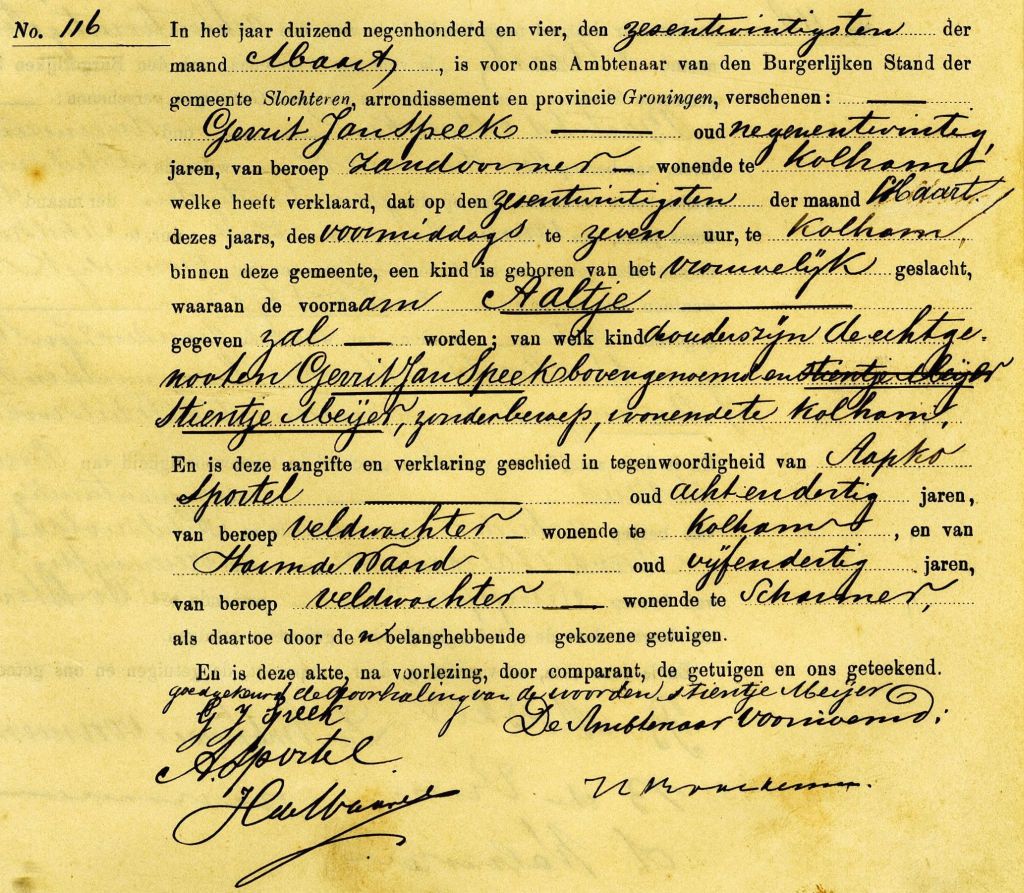 No. 116 In het jaar duizend negenhonderd en vier, den zesentwintigsten der
maand Maart, is voor ons Ambtenaar van den Burgerlijken Stand der
gemeente Slochteren, arrondissement en provincie Groningen, verschenen:
Gerrit Jan Speek oud negenentwintig
jaren, van beroep zandvormer wonende te Kolham
welke heeft verklaard, dat op den zesentwintigsten der maand Maart
dezes jaars, des voormiddags te zeven uur, te Kolham,
binnen deze gemeente, een kind is geboren van het vrouwelijk geslacht,
waaraan de voornaam Aaltje
gegeven zal worden; van welk kind d'ouders zijn de echtge-
nooten Gerrit Jan Speek bovengenoemd en Stientje Meijer
Stientje Meijer, zonder beroep, wonende te Kolham,
En is deze aangifte en verklaring geschied in tegenwoordigheid van Aapko
Sportel oud achtendertig jaren,
van beroep veldwachter wonende te Kolham, en van
Harm de Waard oud vijfendertig jaren,
van beroep veldwachter wonende te Scharmer,
als daartoe door den belanghebbende gekozene getuigen.
En is deze akte, na voorlezing, door comparant, de getuigen en ons geteekend.
goedgekeurd de doorhaling van de woorden Stientje Meijer
G J Speek De Ambtenaar voornoemd:
A. Sportel
H de Waard